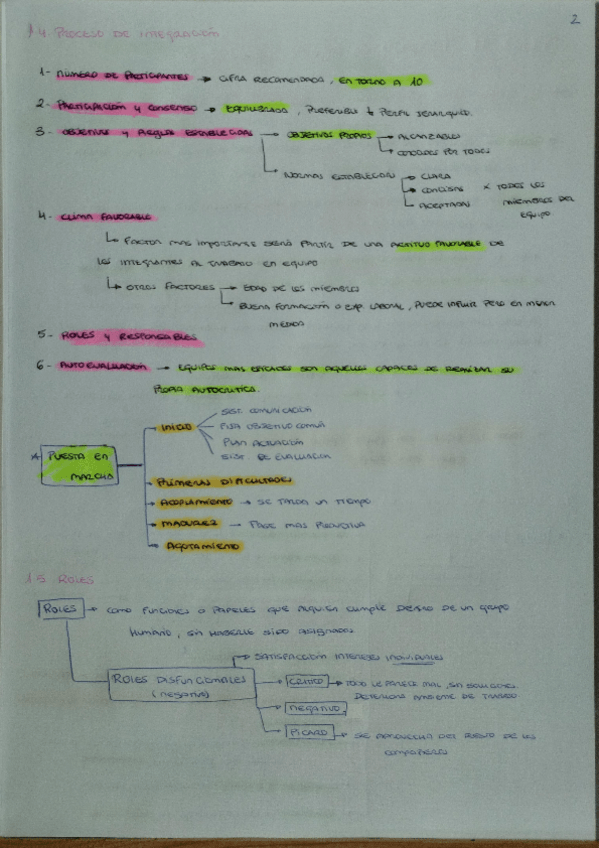 2
1.4. PROCESO DE INTEGRACIÓN
1- NÚMERO DE PARTICIPANTES → CIFRA RECOMENDADA, EN TORNO A 10
2- PARTICIPACIÓN Y CONSENSO → EQUILIBRADA, PREFERIBLE ↓ PERFIL JERÁRQUICO.
3- OBJETIVOS Y REGLAS ESTABLECIDAS → OBJETIVOS PROPIOS → ALCANZABLES
→ CONOCIDOS POR TODOS
→ NORMAS ESTABLECIDAS → CLARA
→ CONCISAS x TODOS LOS
→ ACEPTADAS MIEMBROS DEL
EQUIPO
4- CLIMA FAVORABLE
→ FACTOR MAS IMPORTANTE SERÁ PARTIR DE UNA ACTITUD FAVORABLE DE
LOS INTEGRANTES AL TRABAJO EN EQUIPO
→ OTROS FACTORES → EDAD DE LOS MIEMBROS
→ BUENA FORMACIÓN O EXP LABORAL, PUEDE INFLUIR PERO EN MENOR
MEDIDA
5- ROLES Y RESPONSABLES
6- AUTOEVALUACIÓN → EQUIPOS MAS EFICACES SON AQUELLOS CAPACES DE REALIZAR SU
PROPIA AUTOCRÍTICA.
* PUESTA EN
MARCHA
INICIO
SIST. COMUNICACIÓN
FIJA OBJETIVO COMÚN
PLAN ACTUACIÓN
SIST. DE EVALUACIÓN
PRIMERAS DIFICULTADES
ACOPLAMIENTO → SE TARDA UN TIEMPO
MADUREZ → FASE MAS PRODUCTIVA
AGOTAMIENTO
1.5. ROLES
ROLES → COMO FUNCIONES O PAPELES QUE ALGUIEN CUMPLE DENTRO DE UN GRUPO
HUMANO, SIN HABERLE SIDO ASIGNADOS
→ SATISFACCIÓN INTERESES INDIVIDUALES
ROLES DISFUNCIONALES
(NEGATIVO)
CRÍTICO → TODO LE PARECE MAL, SIN SOLUCIONES.
DETERIORA AMBIENTE DE TRABAJO
NEGATIVO
PÍCARO → SE APROVECHA DEL DE LOS
COMPAÑEROS